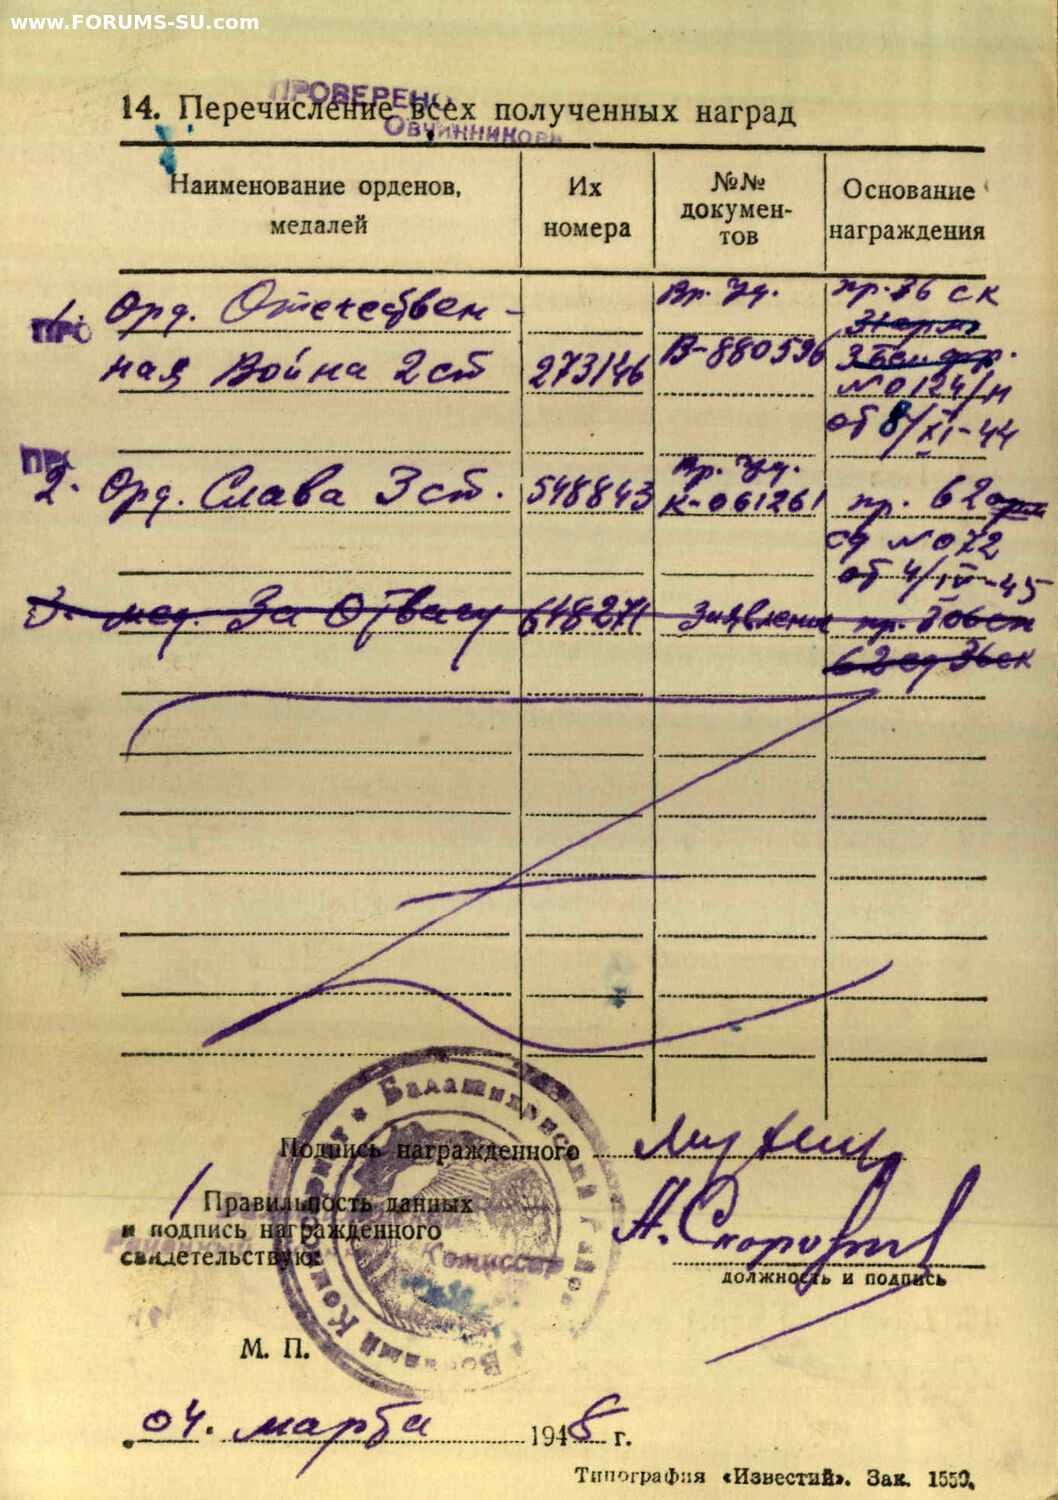 www.FORUMS-SU.com
ПРОВЕРЕНО
14. Перечисление всех полученных наград
Овчинникова
Наименование орденов, медалей
Их номера
№№ докумен-тов
Основание награждения
1. Орд. Отечествен-
Вр. Уд.
пр. 36 ск
ПРО
ная Война 2 ст
273146
В-880596
№ 0124/н
от 8/XI-44
ПРО
2. Орд. Слава 3 ст.
548843
Вр. Уд.
К-061261
пр. 62
сд № 072
от 4/IV-45
3. мед. За Отвагу
648271
Заявление
пр. 306 сп
62 сд 36 ск
Подпись награжденного
Правильность данных
и подпись награжденного
свидетельствую:
Комиссар
А.
должность и подпись
Балашихинский
Военный Комиссариат
М. П.
04. марта 1948 г.
Типография «Известий». Зак. 1550.